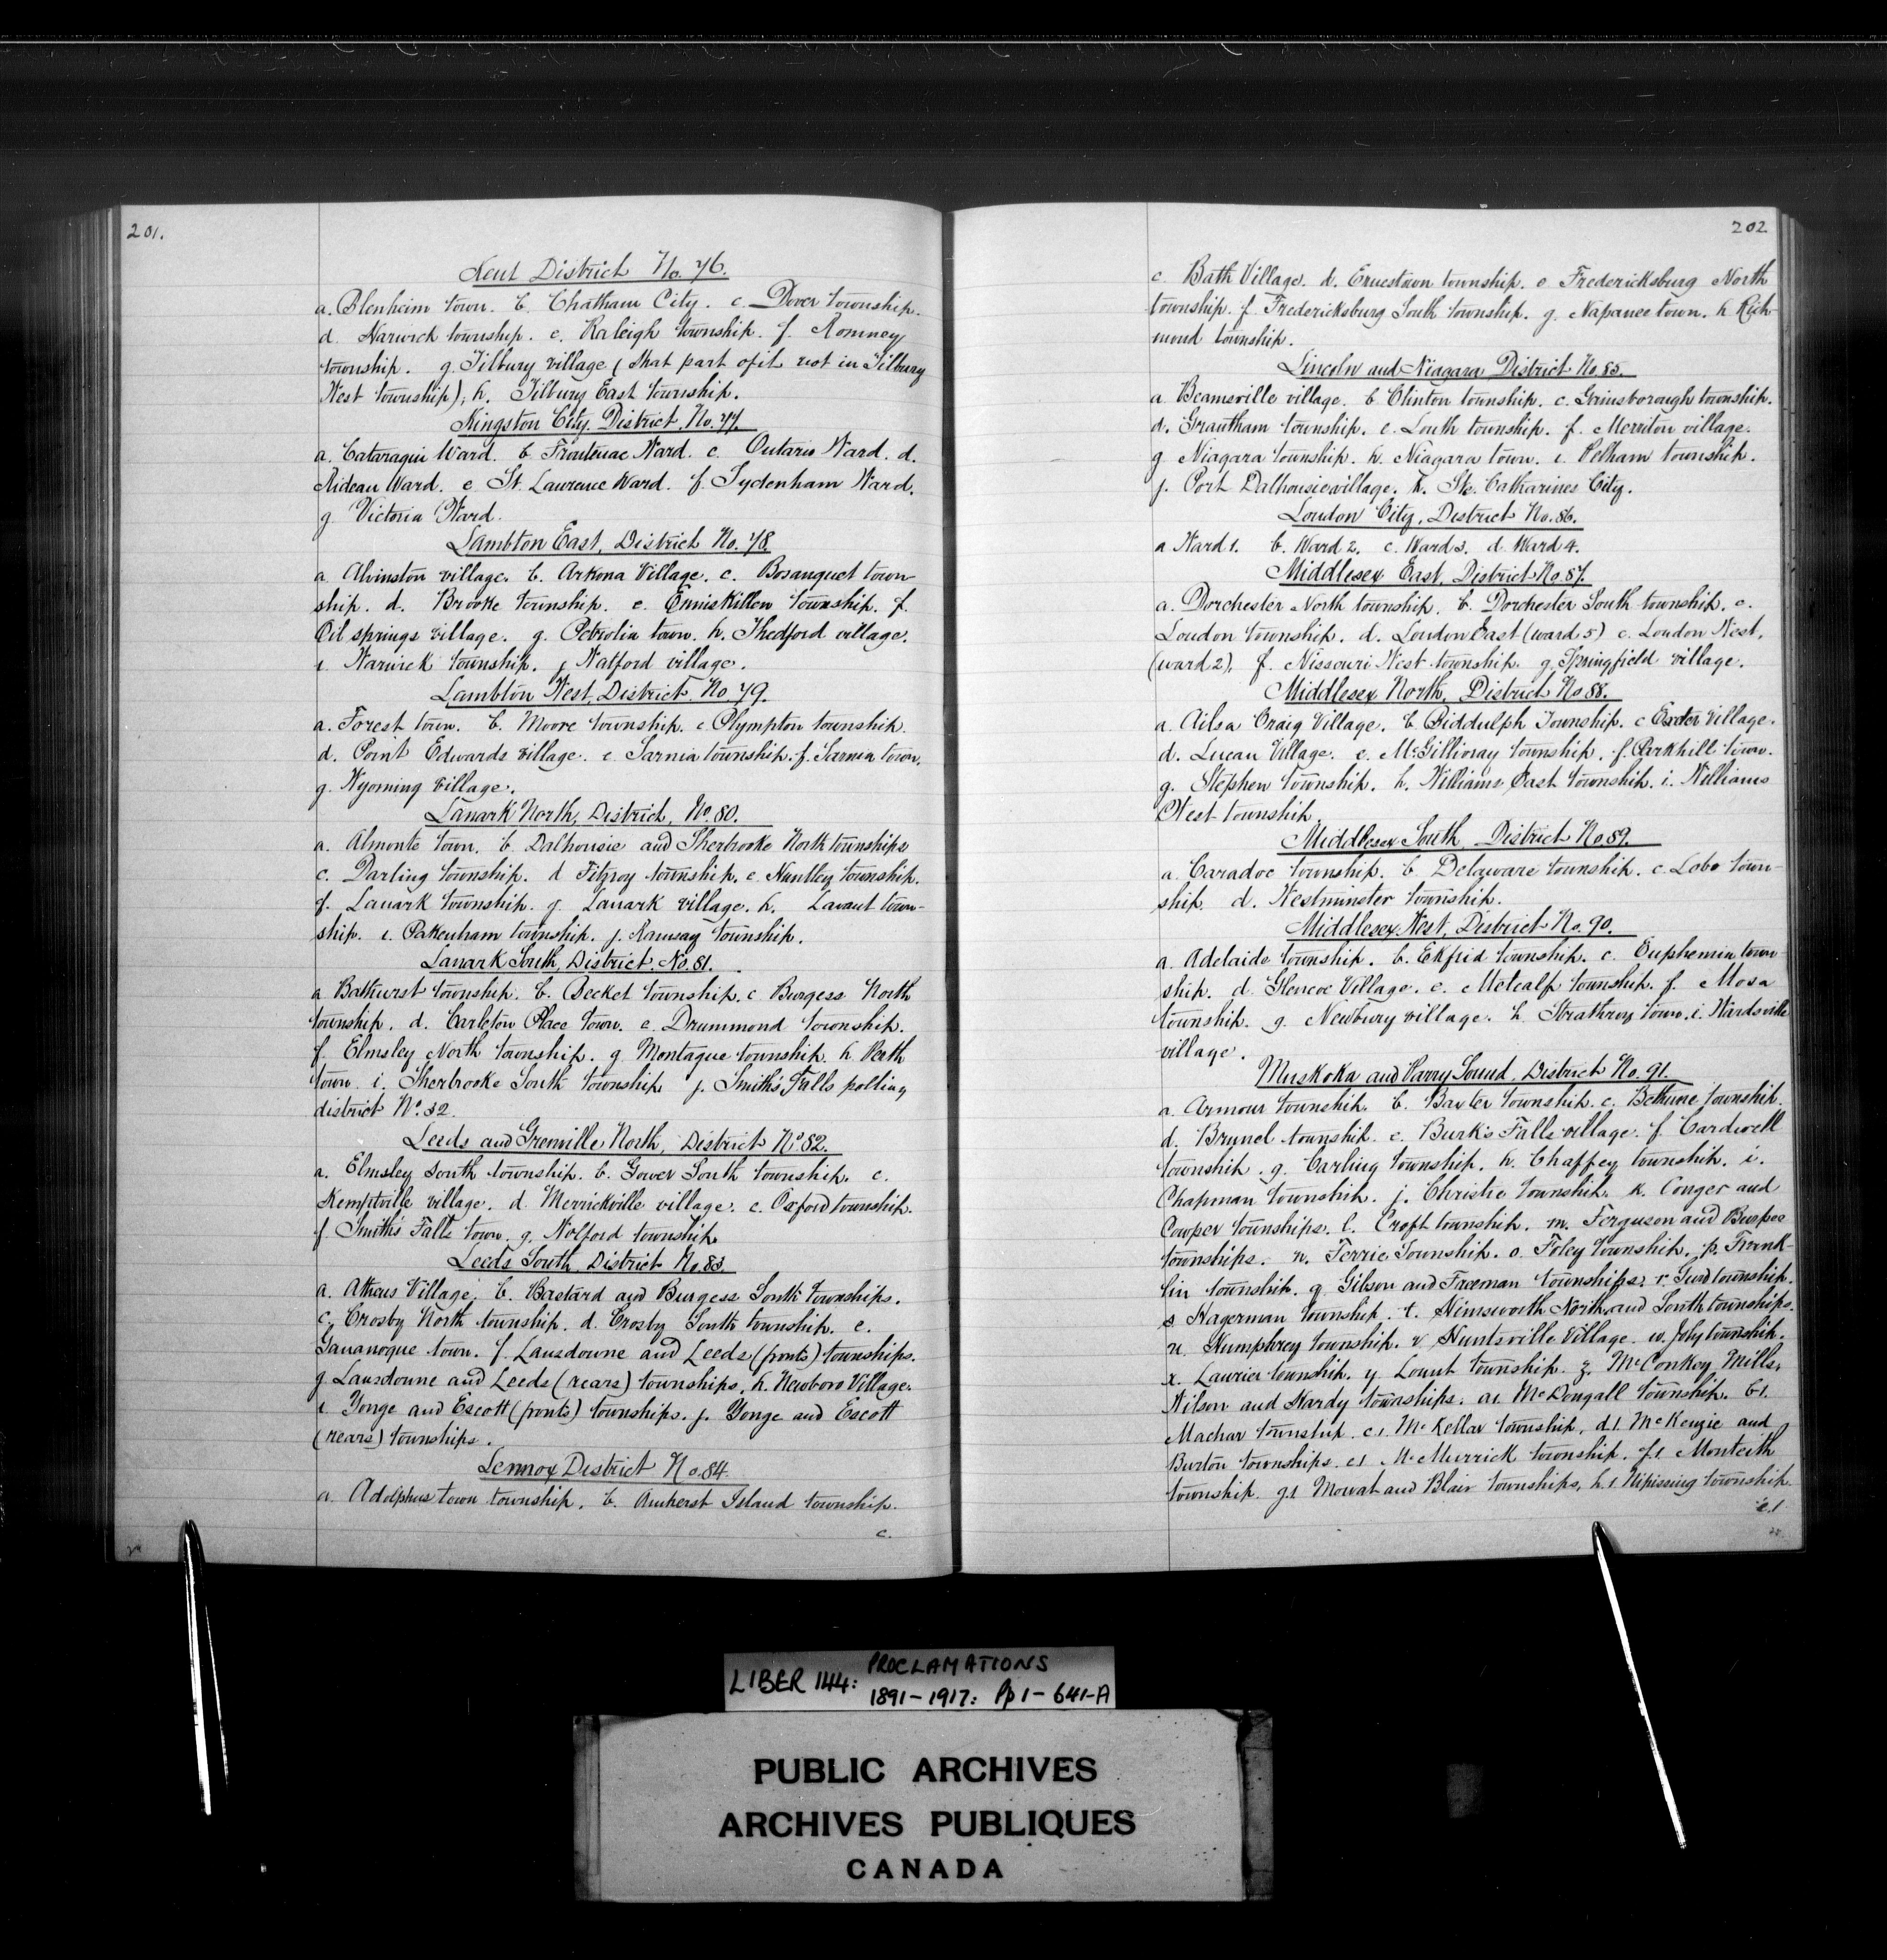 201.
Kent District No. 76.
a. Blenheim town. b. Chatham City. c. Dover township.
d. Harwich township. e. Raleigh township. f. Romney
township. g. Tilbury village (that part of it not in Tilbury
West township); h. Tilbury East township.
Kingston City. District. No. 77.
a. Cataraqui Ward. b. Frontenac Ward. c. Ontario Ward. d.
Rideau Ward. e. St. Lawrence Ward. f. Sydenham Ward.
g Victoria Ward.
Lambton East, District No. 78.
a. Alvinston village. b. Arkona Village. c. Bosanquet town-
ship. d. Brooke township. e. Enniskillen township. f.
Oil springs village. g. Petrolia town. h. Thedford village.
i Warwick township. j Watford village.
Lambton West, District No 79.
a. Forest town. b. Moore township. c Plympton township.
d. Point Edwards village. e Sarnia township. f. Sarnia town.
g. Wyoming village.
Lanark North, District, No. 80.
a. Almonte town. b. Dalhousie and Sherbrooke North townships
c. Darling township. d Fitzroy township. e. Huntley township.
f. Lanark township. g. Lanark village. h. Lavant town-
ship. i. Pakenham township. j. Ramsay township.
Lanark South, District. No. 81.
a Bathurst township. b. Becket township. c Burgess North
township. d. Carleton Place town. e. Drummond township.
f. Elmsley North township. g Montague township. h. Perth
town i. Sherbrooke South township j. Smith's Falls polling
district No. 32.
Leeds and Grenville North, District No. 82.
a. Elmsley South township. b. Gower South township. c.
Kemptville village. d. Merrickville village. e. Oxford township.
f Smith's Falls town. g. Wolford township.
Leeds South, District No. 83.
a. Athens Village. b. Bastard and Burgess South townships.
c. Crosby North township. d. Crosby South township. e.
Gananoque town. f. Lansdowne and Leeds (fronts) townships.
g. Lansdowne and Leeds (rears) townships. h. Newboro Village.
i Yonge and Escott (fronts) townships. j. Yonge and Escott
(rears) townships.
Lennox District No. 84.
a. Adolphustown township. b. Amherst Island township.
c.
202
c Bath Village. d. Ernestown township. e Fredericksburg North
township. f. Fredericksburg South township. g. Napanee town. h Rich-
mond township.
Lincoln and Niagara District No. 85.
a Beamsville village. b Clinton township. c. Gainsborough township.
d. Grantham township. e. Louth township. f. Merriton village.
g. Niagara township. h. Niagara town. i. Pelham township.
j. Port Dalhousie village. k. St. Catharines City.
London City, District No. 86.
a Ward 1. b. Ward 2. c. Ward 3. d. Ward 4.
Middlesex East, District No. 87.
a. Dorchester North township. b. Dorchester South township. c.
London township. d. London East (ward 5) e. London West,
(ward 2). f. Nissouri West township. g. Springfield village.
Middlesex North, District No 88.
a. Ailsa Craig Village. b Biddulph Township. c Exeter Village.
d. Lucan Village. e. McGillivray township. f. Parkhill town.
g. Stephen township. h. Williams East township. i. Williams
West township.
Middlesex South District No 89.
a. Caradoc township. b. Delaware township. c. Lobo town-
ship. d. Westminster township.
Middlesex West, District No. 90.
a. Adelaide township. b. Ekfrid township. c. Euphemia town-
ship. d. Glencoe Village. e. Metcalf township. f. Mosa
township. g. Newbury village. h. Strathroy town. i. Wardsville
village.
Muskoka and Parry Sound, District No. 91.
a. Armour township. b. Baxter township. c. Bethune township.
d. Brunel township. e. Burk's Falls village. f. Cardwell
township. g. Carling township. h. Chaffey township. i.
Chapman township. j. Christie township. k. Conger and
Cowper townships. l. Croft township. m. Ferguson and Burpee
townships. n. Ferrie township. o. Foley township. p. Frank-
lin township. q. Gibson and Freeman townships. r. Gurd township.
s Hagerman township. t. Himsworth North and South townships.
u. Humphrey township. v Huntsville Village. w. Joly township.
x. Laurier township. y Lount township. z. McConkey, Mills,
Wilson and Hardy townships. a1. McDougall township. b1.
Machar township. c1. McKellar township. d1. McKenzie and
Burton townships. e1 McMurrick township. f1. Monteith
township. g1 Mowat and Blair townships, h.1. Nipissing township.
i.1
LIBER 144: PROCLAMATIONS
1891-1917: Pp 1-641-A
PUBLIC ARCHIVES
ARCHIVES PUBLIQUES
CANADA